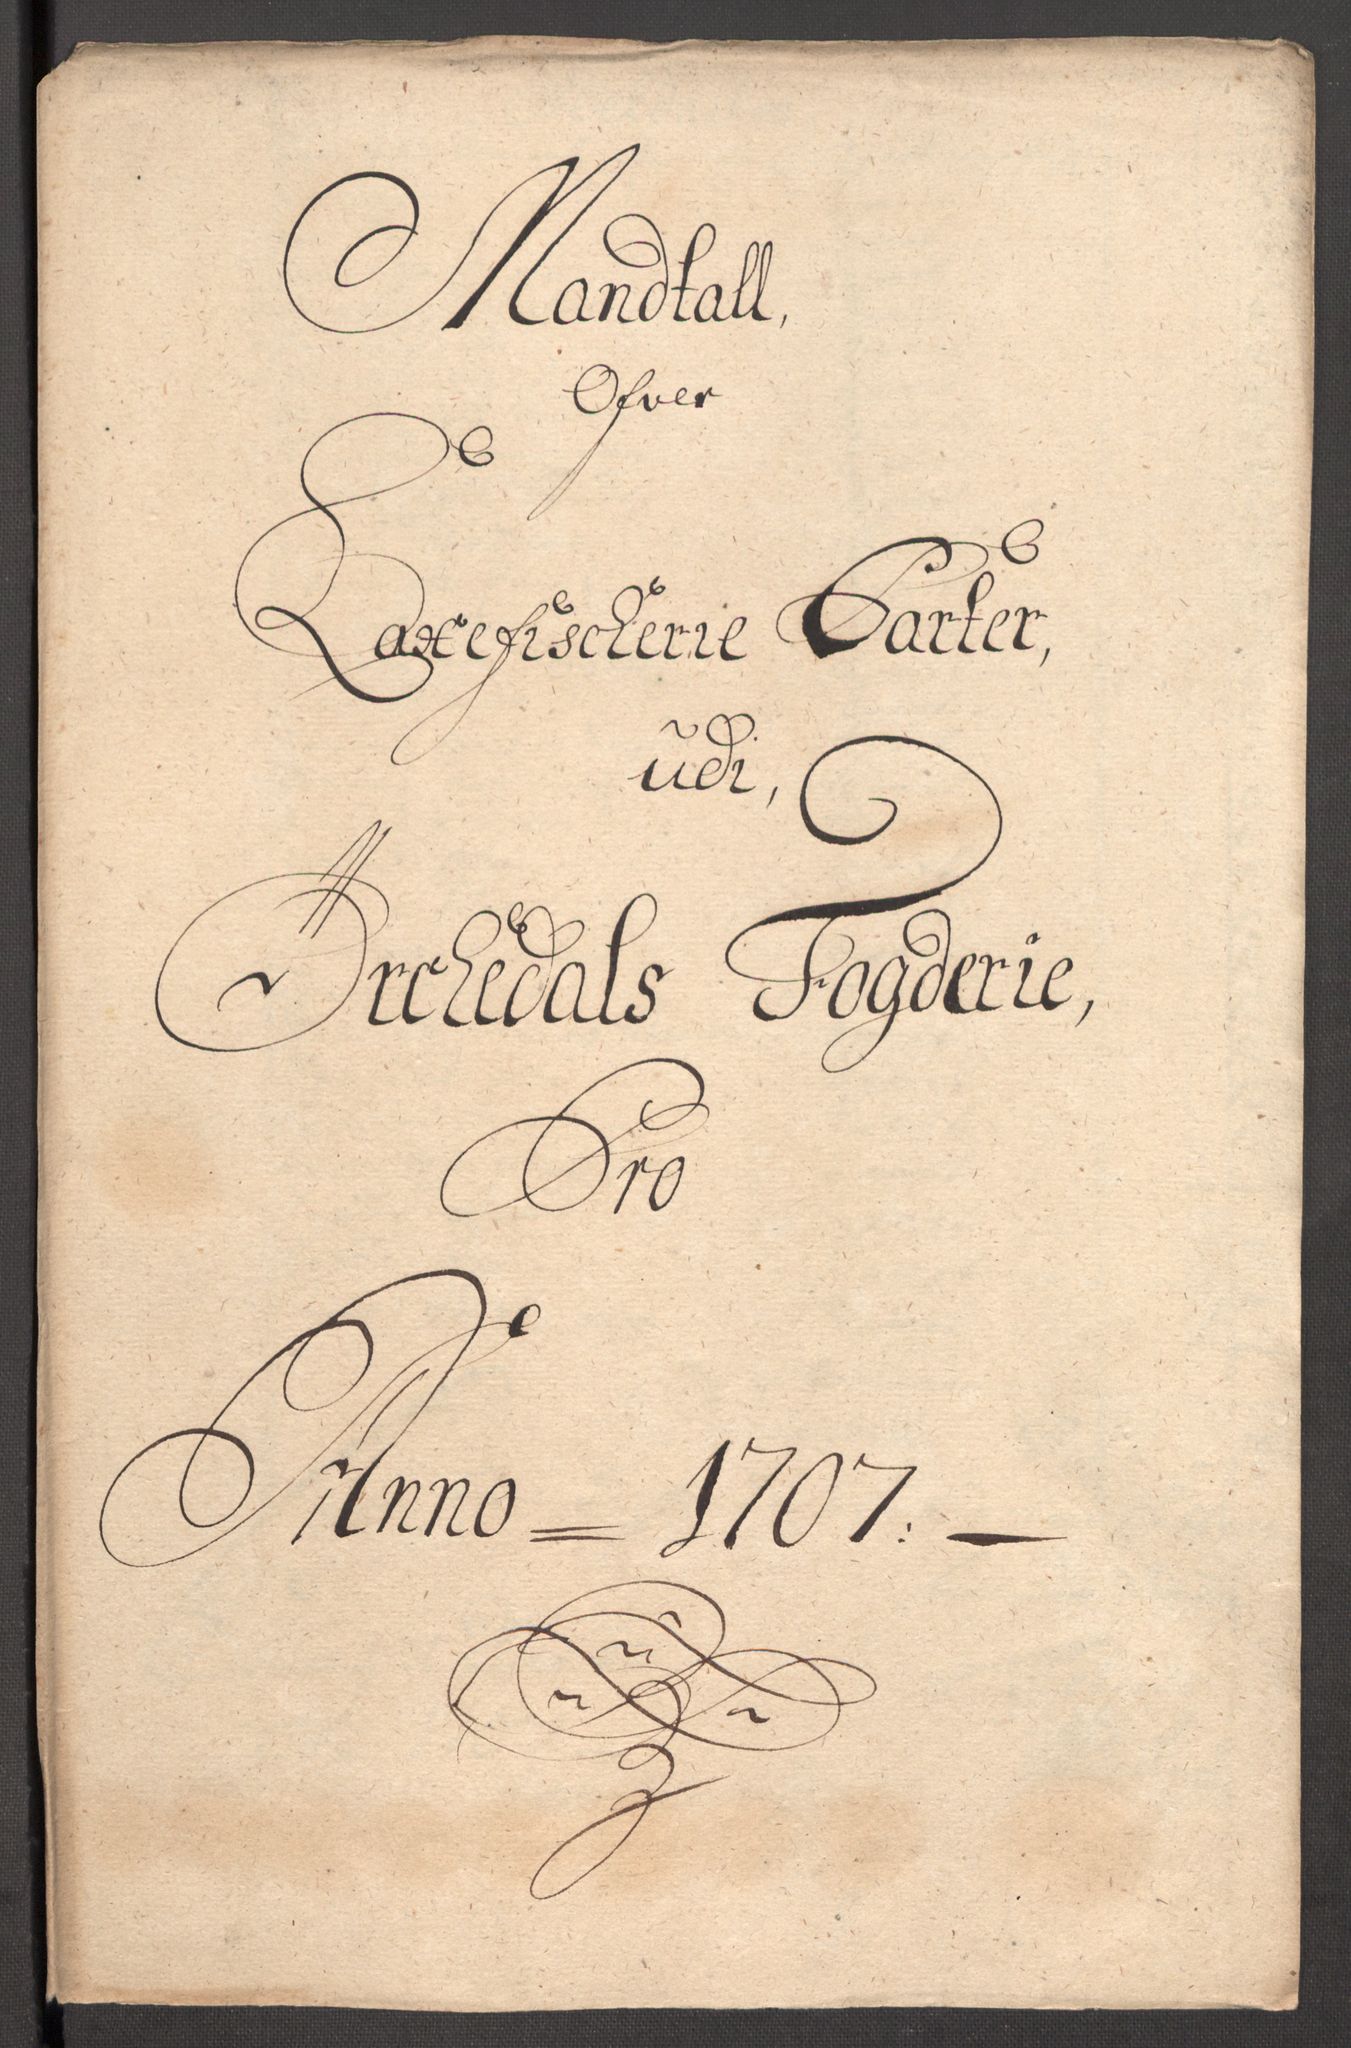 Mandtall,
Ofver
Laxefischerie Parter,
udi,
Örchedals Fogderie,
Pro
Anno = 1707: —